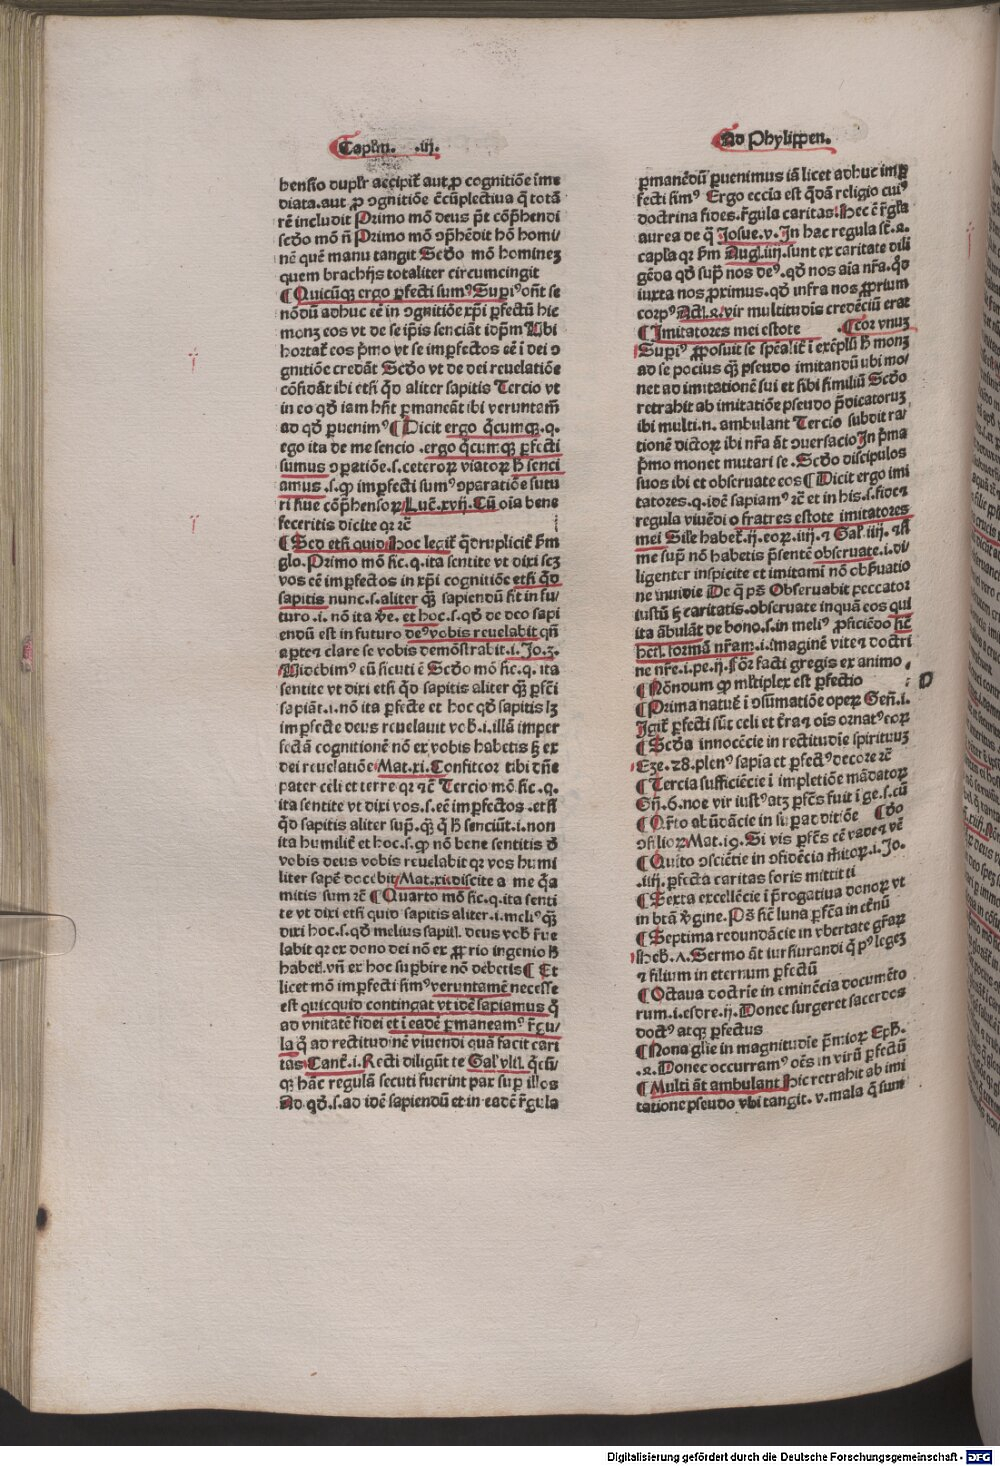 Capl'm. .iij.
hensio dupl'r accipit' aut ꝓ cognitiōe īme
diata. aut ꝓ ꝯgnitiōe ē cūplectiua q̄ totā
rē includit Primo mō deus pn̄t cōp̄hendi
scd̄o mō n̄ Primo mō ꝯp̄hēdit hō homi/
nē quē manu tangit Scd̄o mō hominez
quem brachijs totaliter circumcingit
¶ Quicūqꝫ ergo ꝑfecti sumꝰ Supiꝰ on̄t se
nōdū adhuc eē in ꝯgnitiōe xp̄i ꝑfectū hic
monꝫ eos vt de se ip̄is senciāt idp̄m Ubi
hortat' eos p̄mo vt se imꝑfectos eē ī dei ꝯ
gnitiōe credāt Scd̄o vt de dei reuelatiōe
cōfidāt ibi etsi qd̄ aliter sapitis Tercio vt
in eo qd̄ iam hn̄t ꝑmaneāt ibi veruntam̄
ad qd̄ ꝑuenimꝰ ¶ Dicit ergo q̄cumqꝫ .q.
ego ita de me sencio .ergo q̄cumqꝫ ꝑfecti
sumus ꝯꝑatiōe .s. ceteroꝝ viatoꝝ h̄ senci
amus .s. ꝙ imꝑfecti sumꝰ oꝑatiōe sutu
ri siue cōp̄hensoꝝ Luc̄. xvij. Cū oīa bene
feceritis dicite qꝛ ꝛc̄
¶ Sed etsi quid Hoc legit' q̄druplicit' ẜm
glo. Primo mō sic. q. ita sentite vt dixi scꝫ
vos eē imꝑfectos in xp̄i cognitiōe etsi qd̄
sapitis nunc .s. aliter qꝫ̄ sapiendū sit in fu/
turo .i. nō ita ꝟe. et hoc .s. qd̄ de deo sapi
endū est in futuro deꝰ vobis reuelabit qn̄
aꝑte ⁊ clare se vobis demōstrabit .i. Jo. 3.
Uidebimꝰ eū sicuti ē Scd̄o mō sic. q. ita
sentite vt dixi etsi qd̄ sapitis aliter qꝫ̄ ꝑfc̄i
sapiāt .i. nō ita ꝑfecte et hoc qd̄ sapitis lꝫ
imꝑfecte deus reuelauit vob̄ .i. illā imper
fectā cognitionē nō ex vobis habetis ẜ ex
dei reuelatiōe Mat. xi. Confiteor tibi dn̄e
pater celi et terre qꝛ ⁊ꝛc̄ Tercio mō sic. q.
ita sentite vt dixi vos .s. eē imꝑfectos .etsi
qd̄ sapitis aliter sup̄. qꝫ̄ q̄ h̄ senciūt .i. non
ita humilit' et hoc .s. ꝙ nō bene sentitis d̄
vobis deus vobis reuelabit qꝛ vos humi
liter sapē docebit Mat. xi. discite a me q̄a
mitis sum ꝛc̄ ¶ Quarto mō sic. q. ita senti
te vt dixi etsi quid sapitis aliter .i. meliꝰ qꝫ̄
dixi hoc .s. qd̄ melius sapit̄. deus vob̄ reue
labit qꝛ ex dono dei nō ex ꝓprio ingenio h̄
habet̄. vn̄ ex hoc suꝑbire nō debetis ¶ Et
licet mō imꝑfecti simꝰ veruntamē necesse
est quicquid contingat vt idē sapiamus q̄
ad vnitatē fidei et ī eadē ꝑmaneamꝰ r̄gu/
la q̄ ad rectitudinē viuendi quā facit cari
tas Cant̄. i. Recti diligūt te Gal' vlti. q̄cū/
qꝫ hāc regulā secuti fuerint pax suꝑ illos
Ad qd̄ .s. ad idē sapiendū et in eadē r̄gula
Ad Phylippen.
ꝑmanēdū ꝑuenimus iā licet adhuc imꝑ
fecti simꝰ Ergo eccīa est q̄dā religio cuiꝰ
doctrina fides. r̄gula caritas Hec ē r̄gl̄a
aurea de q̄ Josue. v. In hac regula st̄. 2.
capl̄a qꝛ ẜm Aug. iiij. sunt ex caritate dili
gēda qd̄ sup̄ nos deꝰ. qd̄ nos aīa nr̄a. qd̄
iuxta nos ꝓximus. qd̄ infra nos ꝓprium
corpꝰ Act. 2. vir multitudīs credēciū erat
¶ Imitatores mei estote ¶ cor vnuꝫ
Supiꝰ ꝓposuit se spēalit' ī exēplū h̄ monꝫ
ad se pocius qꝫ̄ pseudo imitandū ubi mo/
net ad imitationē sui et sibi similiū Scd̄o
retrahit ab imitatiōe pseudo p̄dicatoruꝫ
ibi multi. n. ambulant Tercio subdit ra/
tionē dictoꝝ ibi nr̄a āt ꝯuersacio In p̄ma
p̄mo monet mutari se. Scd̄o discipulos
suos ibi et obseruate eos ¶ Dicit ergo imi
tatores. q. idē sapiamꝰ ꝛc̄ et in his .s. fide ⁊
regula viuēdi o fratres estote imitatores
mei Sil'e habet'. ij. eoꝝ. iiij. ⁊ Gal'. iiij. ⁊ si
me sup̄ nō habetis p̄sentē obseruate .i. di/
ligenter inspicite et imitamī nō obꝑuatio
ne inuidie De q̄ ps̄ Obseruabit peccator
iustū ẜ caritatis. obseruate inquā eos qui
ita ābulāt de bono .s. in meliꝰ ꝓficiēdo sic̄
het̄. formā nr̄am .i. imaginē vite ⁊ doctri
ne nr̄e .i. pe. ij. for̄ facti gregis ex animo
¶ Nōndum ꝙ ml'tiplex est ꝑfectio D
¶ Prima natur̄ ī ꝯsūmatiōe opeꝝ Gen̄. i.
Igit' ꝑfecti sūt celi et t'ra ⁊ oīs ornatꝰ eoꝝ
¶ Scd̄a innocēcie in rectitudīe spirituuꝫ
Eze. 28. plenꝰ sapīa et ꝑfectꝰ decore ꝛc̄
¶ Tercia sufficiēcie ī impletiōe mādatoꝝ
Gn̄. 6. noe vir iustꝰ atqꝫ ꝑfc̄s fuit ī ge. s. cū
¶ Qr̄to abūdācie in suꝑadditiōe ¶ do
ꝯsilioꝝ Mat. 19. Si vis ꝑfc̄s eē vade ⁊ vē
¶ Quīto ꝯsciētie in ꝯfidēcia m̄itoꝝ. i. Jo.
.iiij. ꝑfecta caritas foris mittit ti
¶ Sexta excellēcie ī p̄rogatiua donoꝝ vt
in btā v̄gine. Ps̄ sic̄ luna ꝑfc̄a in et̄nū
¶ Septima redundācie in vbertate gr̄aꝝ
Heb. 7. Sermo āt iurisiurandi q̄ pꝰ legeꝫ
ē filium in eternum ꝑfectū
¶ Octaua doctrīe in eminēcia documēto
rum .i. esdre. ij. Donec surgeret sacerdos
doctꝰ atqꝫ ꝑfectus
¶ Nona gl'ie in magnitudīe p̄mioꝝ Eph̄.
.2. Donec occurramꝰ oēs in virū ꝑfectū
¶ Multi āt ambulant Hic retrahit ab imi
tatione pseudo vbi tangit. v. mala q̄ sunt
Digitalisierung gefördert durch die Deutsche Forschungsgemeinschaft - DFG